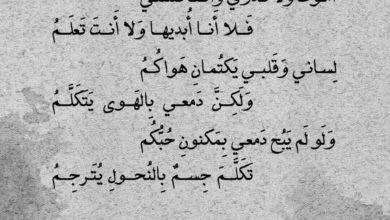 فَـلا أَنـا أُبديهـا وَلا أَنـتَ تَعلَـمُ
لِساني وَقَلبـي يَكتُمـانِ هَواكُـمُ
وَلَكِـنَّ دَمعـي بِالهَـوى يَتَكَلَّـمُ
وَلَو لَم يَبُح دَمعي بِمَكنونِ حُبُّكُم
تَكَلَّـمَ جِسـمٌ بِالنُحـولِ يُتَرجِـمُ